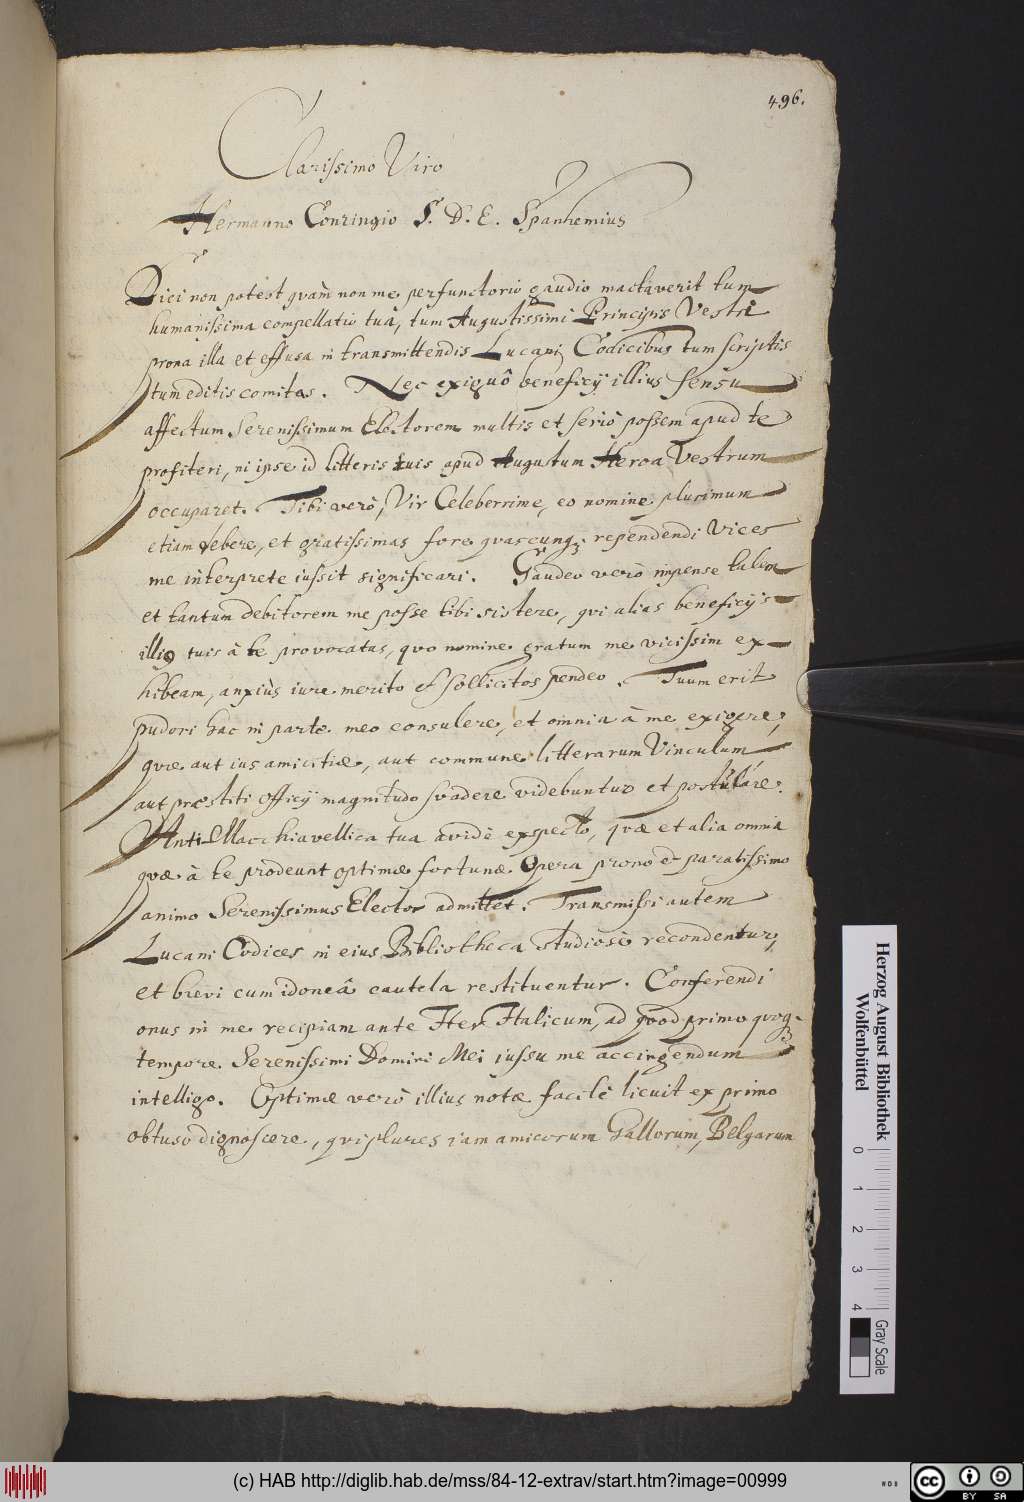 496.
Clarissimo Viro
Hermanno Conringio S. D. E. Spanhemius
Dici non potest quàm non me perfunctorio gaudio mactaverit tum
humanissima compellatio tua, tum Augustissimi Principis Vestri
prona illa et effusa in transmittendis Lucani Codicibus tum scriptis
tum editis comitas. Nec exiguô beneficij illius sensu
affectum Serenissimum Electorem multis et seriò possem apud te
profiteri, ni ipse id litteris suis apud Augustum Heroa Vestrum
occuparet. Tibi verò, Vir Celeberrime, eo nomine plurimum
etiam debere, et gratissimas fore quascunq; rependendi vices
me interprete iussit significari. Gaudeo verò impense talem
et tantum debitorem me posse tibi sistere, qui alias beneficijs
illis tuis â te provocatus, quo nomine gratum me vicissim ex-
hibeam, anxiùs iure merito et sollicitos pendeo. Tuum erit
pudori hac in parte meo consulere, et omnia à me exigere,
quæ aut ius amicitiæ, aut commune litterarum Vinculum
aut præstiti officij magnitudo svadere videbuntur et postulare.
Anti-Macchiavellica tua avidè expecto, quæ et alia omnia
quæ à te prodeunt optimæ fortunæ Opera prono et paratissimo
animo Serenissimus Elector admittet. Transmissi autem
Lucani Codices in eius Bibliotheca studiosè recondentur,
et brevi cum idoneâ cautela restituentur. Conferendi
onus in me recipiam ante Iter Italicum, ad quod primo quoq;
tempore Serenissimi Domini Mei iussu me accingendum
intelligo. Optimæ verò illius notæ facilè licuit ex primo
obtuso dignoscere, qui plures iam amicorum Gallorum, Belgarum
Herzog August Bibliothek
Wolfenbüttel
0 1 2 3 4
Gray Scale
(c) HAB http://diglib.hab.de/mss/84-12-extrav/start.htm?image=00999
cc BY SA